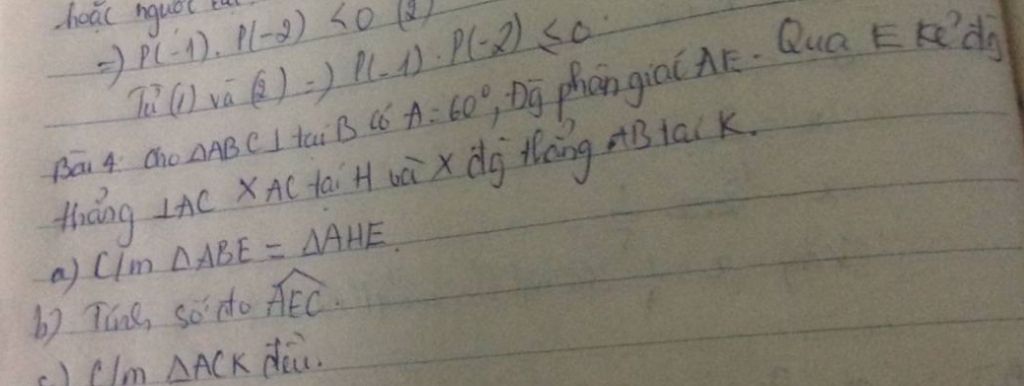 hoặc ngược
=) P(-1). P(-2) < 0 (2)
Từ (1) và (2) =) P(-1). P(-2) ≤ 0
Bài 4: Cho ΔABC ⊥ tại B có A = 60°, Đg phân giác AE. Qua E kẻ đg
thẳng ⊥AC X AC tại H và X đg thẳng AB tại K.
a) C/m ΔABE = ΔAHE.
b) Tính số đo AEC.
c) C/m ΔACK đều.